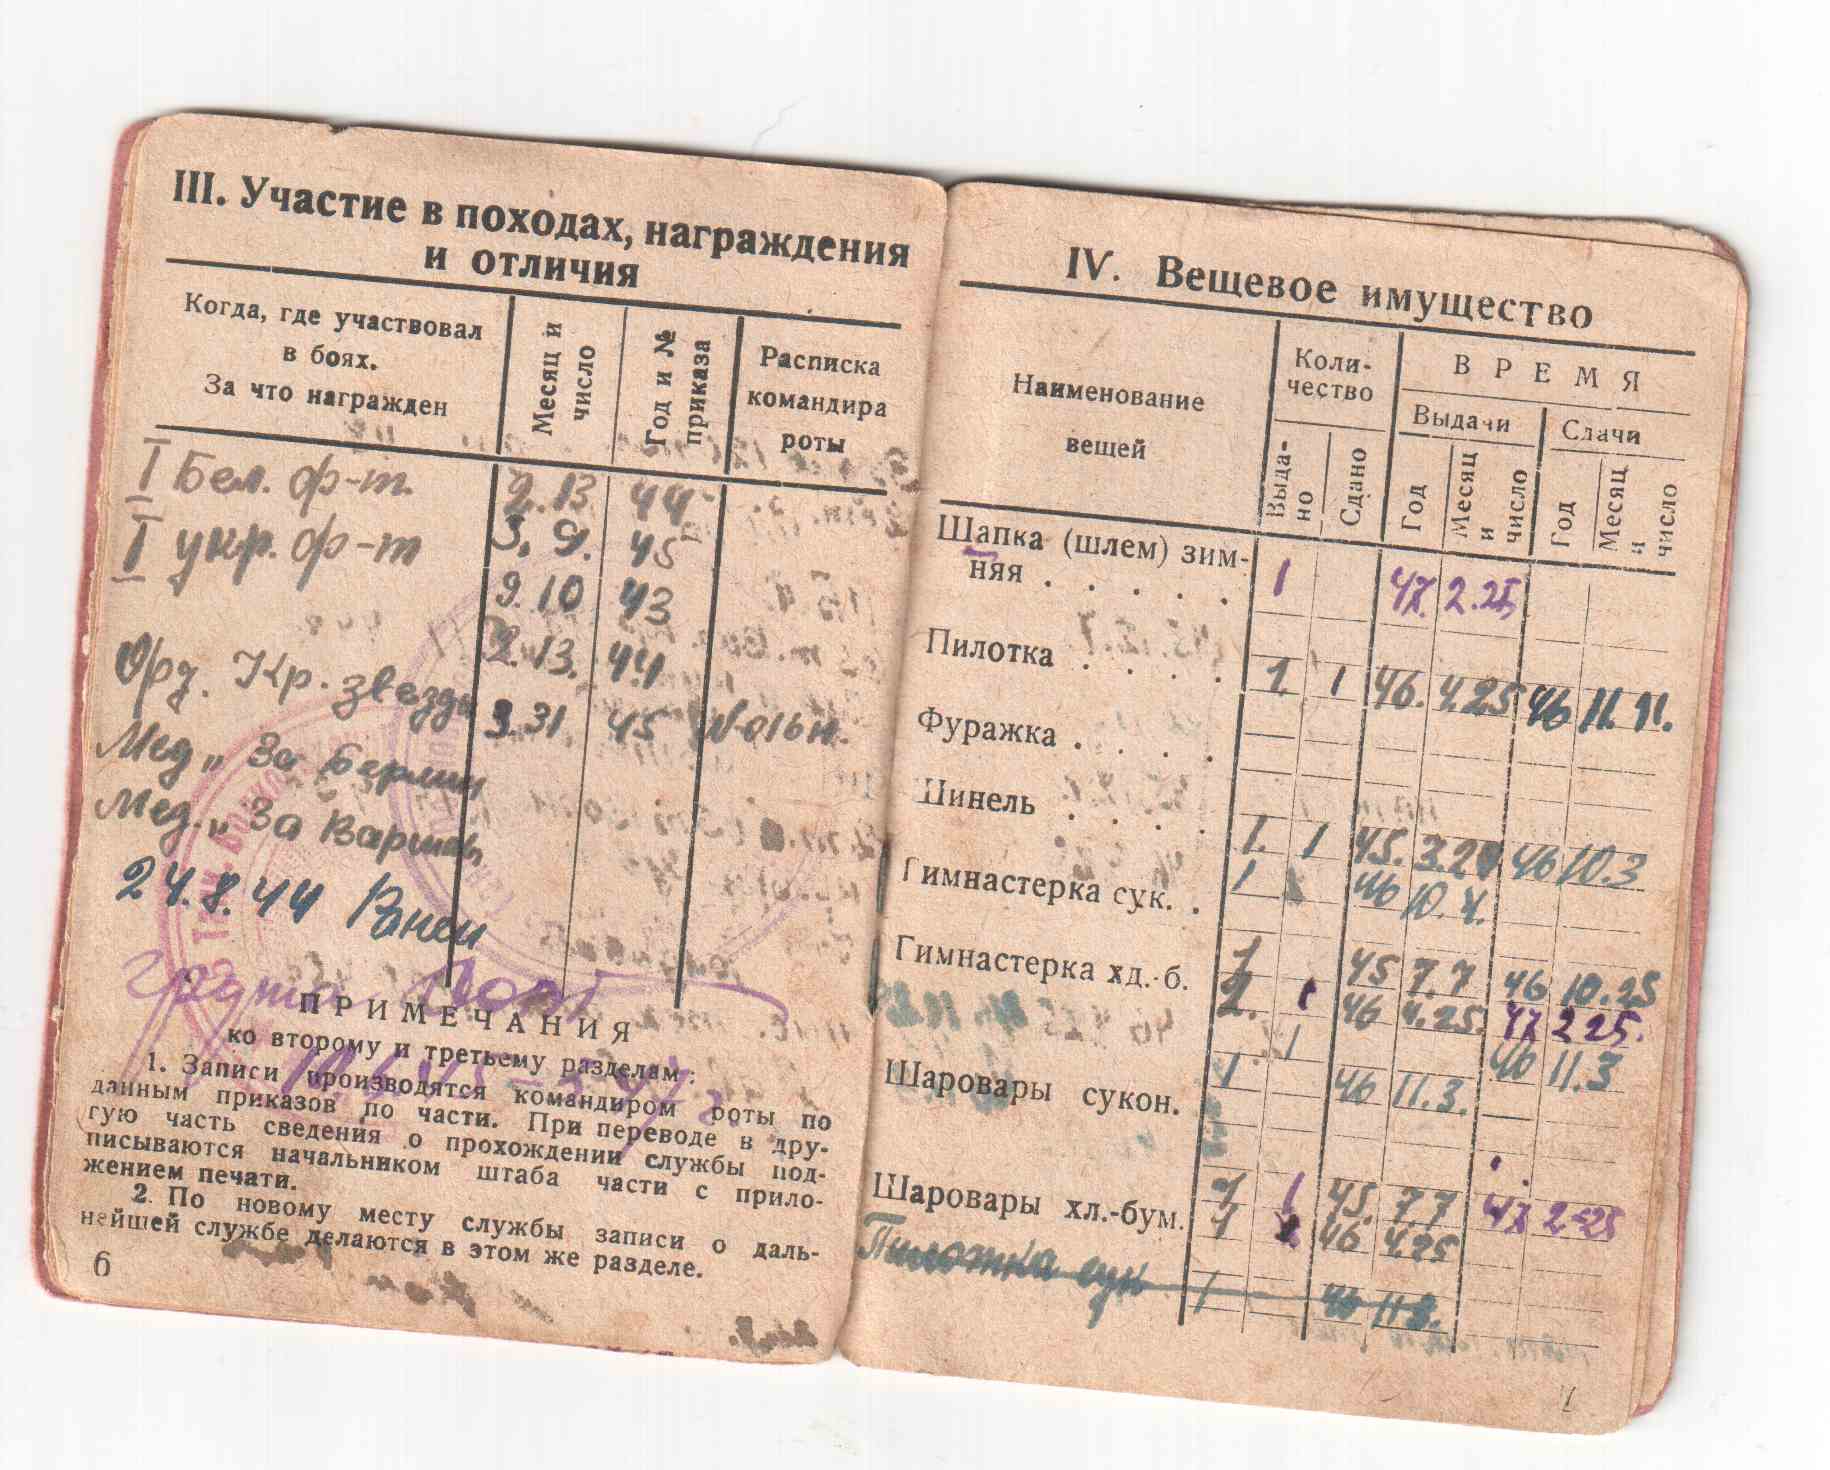 III. Участие в походах, награждения
и отличия
Когда, где участвовал
в боях.
За что награжден
Месяц и
число
Год и №
приказа
Расписка
командира
роты
I Бел. ф-т. 2.13 44
I укр. ф-т 3. 9. 45
9.10 43
2.13. 44
Орд. Кр. звезды
3.31 45
Мед „ За Берлин
Мед. „ За Варшав
24.8.44 Ранен
ПРИМЕЧАНИЯ
ко второму и третьему разделам:
1. Записи производятся командиром роты по
данным приказов по части. При переводе в дру-
гую часть сведения о прохождении службы под-
писываются начальником штаба части с прило-
жением печати.
2. По новому месту службы записи о даль-
нейшей службе делаются в этом же разделе.
6
IV. Вещевое имущество
Наименование
вещей
Коли-
чество
Выда-
но
Сдано
ВРЕМЯ
Выдачи
Сдачи
Год
Месяц
и
число
Год
Месяц
и
число
Шапка (шлем) зим-
няя . . . . . 1 47 2.25
Пилотка . . . . 1 1 46. 4.25 46 11.11.
Фуражка . . . .
Шинель . . . . 1. 1 45. 3.29 46 10.3
1 46 10.4.
Гимнастерка сук. .
Гимнастерка хд.-б. 1 45 7.7 46 10.25
2. 1 46 4.25. 47 2 25.
1 46 11.3
Шаровары сукон. 1 46 11.3.
Шаровары хл.-бум. 1 1 45. 7 7 47 2-25
1 46 4.25
Пилотка сук 1 46 11.3.